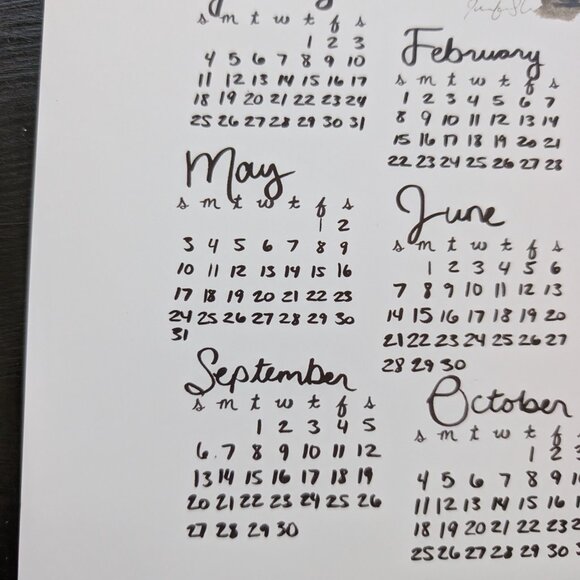 s m t w t f s
1 2 3
4 5 6 7 8 9 10
11 12 13 14 15 16 17
18 19 20 21 22 23 24
25 26 27 28 29 30 31
February
s m t w t f s
1 2 3 4 5 6 7
8 9 10 11 12 13 14
15 16 17 18 19 20 21
22 23 24 25 26 27 28
May
s m t w t f s
1 2
3 4 5 6 7 8 9
10 11 12 13 14 15 16
17 18 19 20 21 22 23
24 25 26 27 28 29 30
31
June
s m t w t f s
1 2 3 4 5 6
7 8 9 10 11 12 13
14 15 16 17 18 19 20
21 22 23 24 25 26 27
28 29 30
September
s m t w t f s
1 2 3 4 5
6 7 8 9 10 11 12
13 14 15 16 17 18 19
20 21 22 23 24 25 26
27 28 29 30
October
s m t w t f s
1 2 3
4 5 6 7 8 9
11 12 13 14 15 16
18 19 20 21 22 23
25 26 27 28 29 30